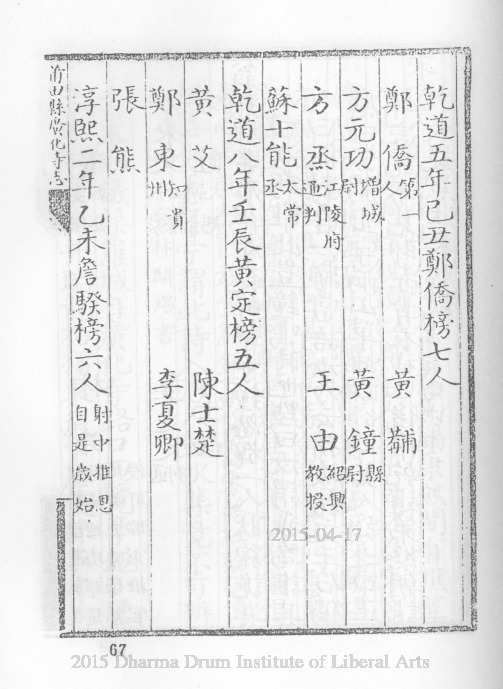 乾道五年己丑鄭僑榜七人
鄭僑 第一人 黃黼
方元功 增城尉 黃鐘 縣尉
方烝 江陵府通判 王由 紹興教授
蘇十能 太常丞
乾道八年壬辰黃定榜五人
黃艾 陳士楚
鄭東 知貴州 李夏卿
張熊
淳熙二年乙未詹騤榜六人 射中推恩自是歲始
莆田縣廣化寺志
2015-04-17
67
2015 Dharma Drum Institute of Liberal Arts